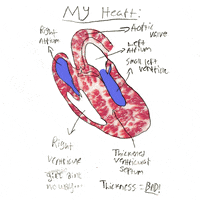 My Heart:
Right
Atrium
Aortic
valve
Left
Atrium
Small left
ventricle
Right
ventricle
Thickened
ventricular
septum
Thickness = BAD!